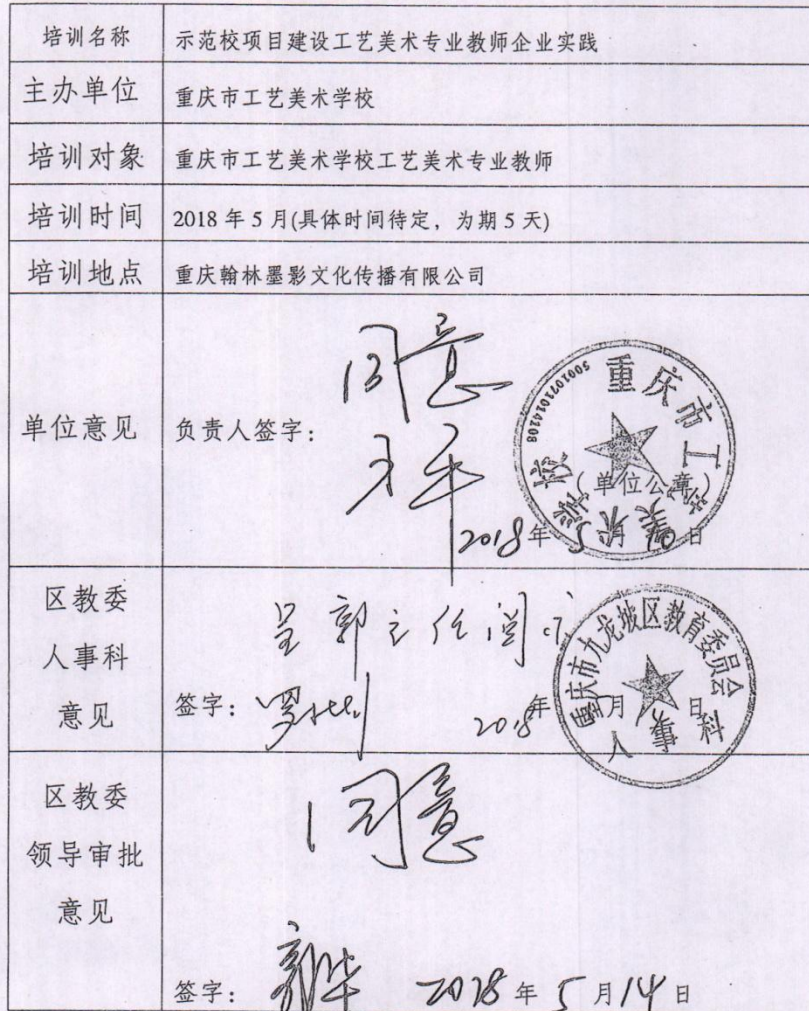 培训名称 示范校项目建设工艺美术专业教师企业实践
主办单位 重庆市工艺美术学校
培训对象 重庆市工艺美术学校工艺美术专业教师
培训时间 2018年5月(具体时间待定，为期5天)
培训地点 重庆翰林墨影文化传播有限公司
同意
单位意见 负责人签字：
重庆市工艺美术学校
5001071014108
（单位公章）
2018年5月 日
区教委
人事科
意见
呈郭主任阅示
签字： 2018年 月 日
重庆市九龙坡区教育委员会
人事科
区教委
领导审批
意见
同意
签字： 2018年5月14日